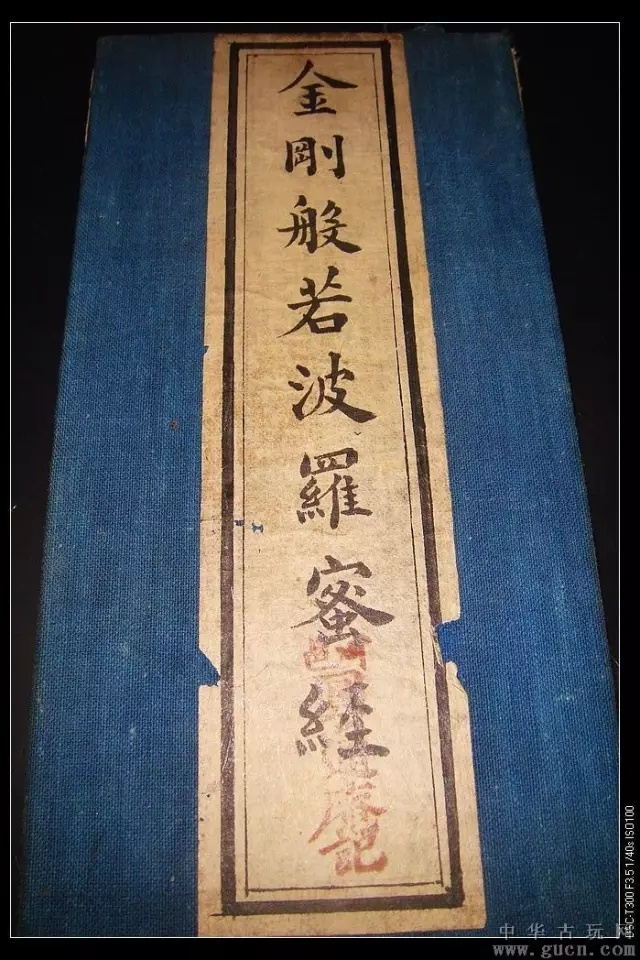 金剛般若波羅蜜經
記
DSC-T300 F3.5 1/40s ISO100
中华古玩网
www.gucn.com